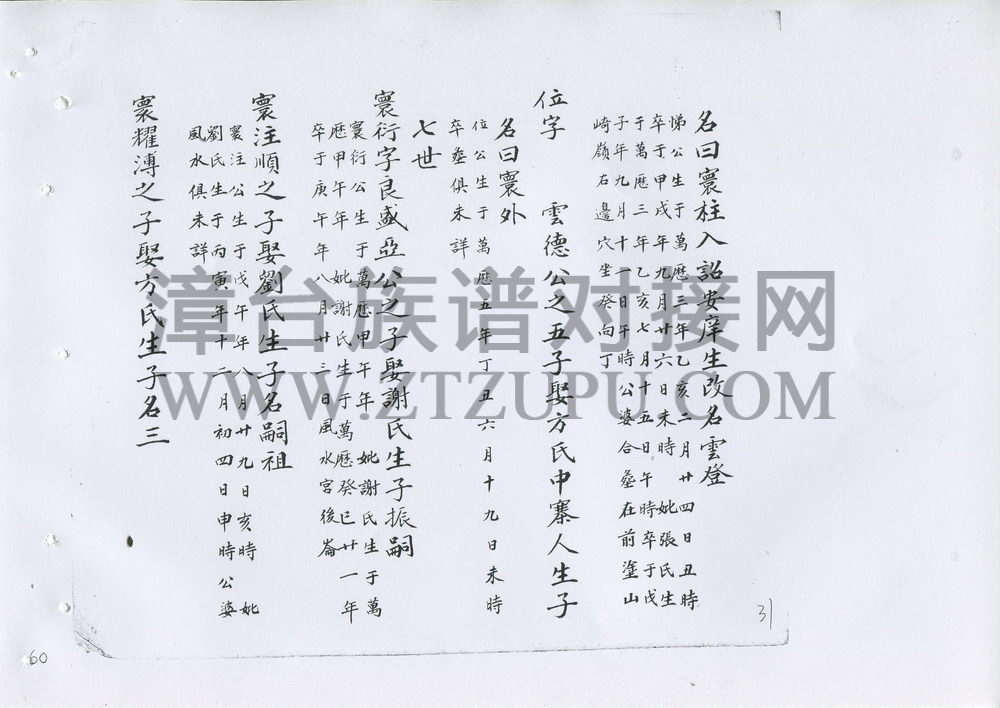 名曰寰柱入詔安庠生改名雲登
悌公生于萬歷三年乙亥二月廿四日丑時
卒于甲戌年九月廿六日未時妣張氏生
于萬歷三年乙亥七月十五日午時卒于戊
子年九月十一日午時公婆合塟在前塗山
崎嶺右邊穴坐癸向丁
位字 雲德公之五子娶方氏中寨人生子
名曰寰外
位公生于萬歷五年丁丑六月十九日未時
卒塟俱未詳
七世
寰衍字良盛亞公之子娶謝氏生子振嗣
寰衍公生于萬歷甲午年妣謝氏生于萬
歷甲午年妣謝氏生于萬歷癸巳廿一年
卒于庚午年八月廿三日風水宮後崙
寰注順之子娶劉氏生子名嗣祖
寰注公生于戊午年八月廿九日亥時妣
劉氏生于丙寅年十二月初四日申時公婆
風水俱未詳
寰耀漙之子娶方氏生子名三
31
60
漳台族谱对接网
WWW.ZTZUPU.COM